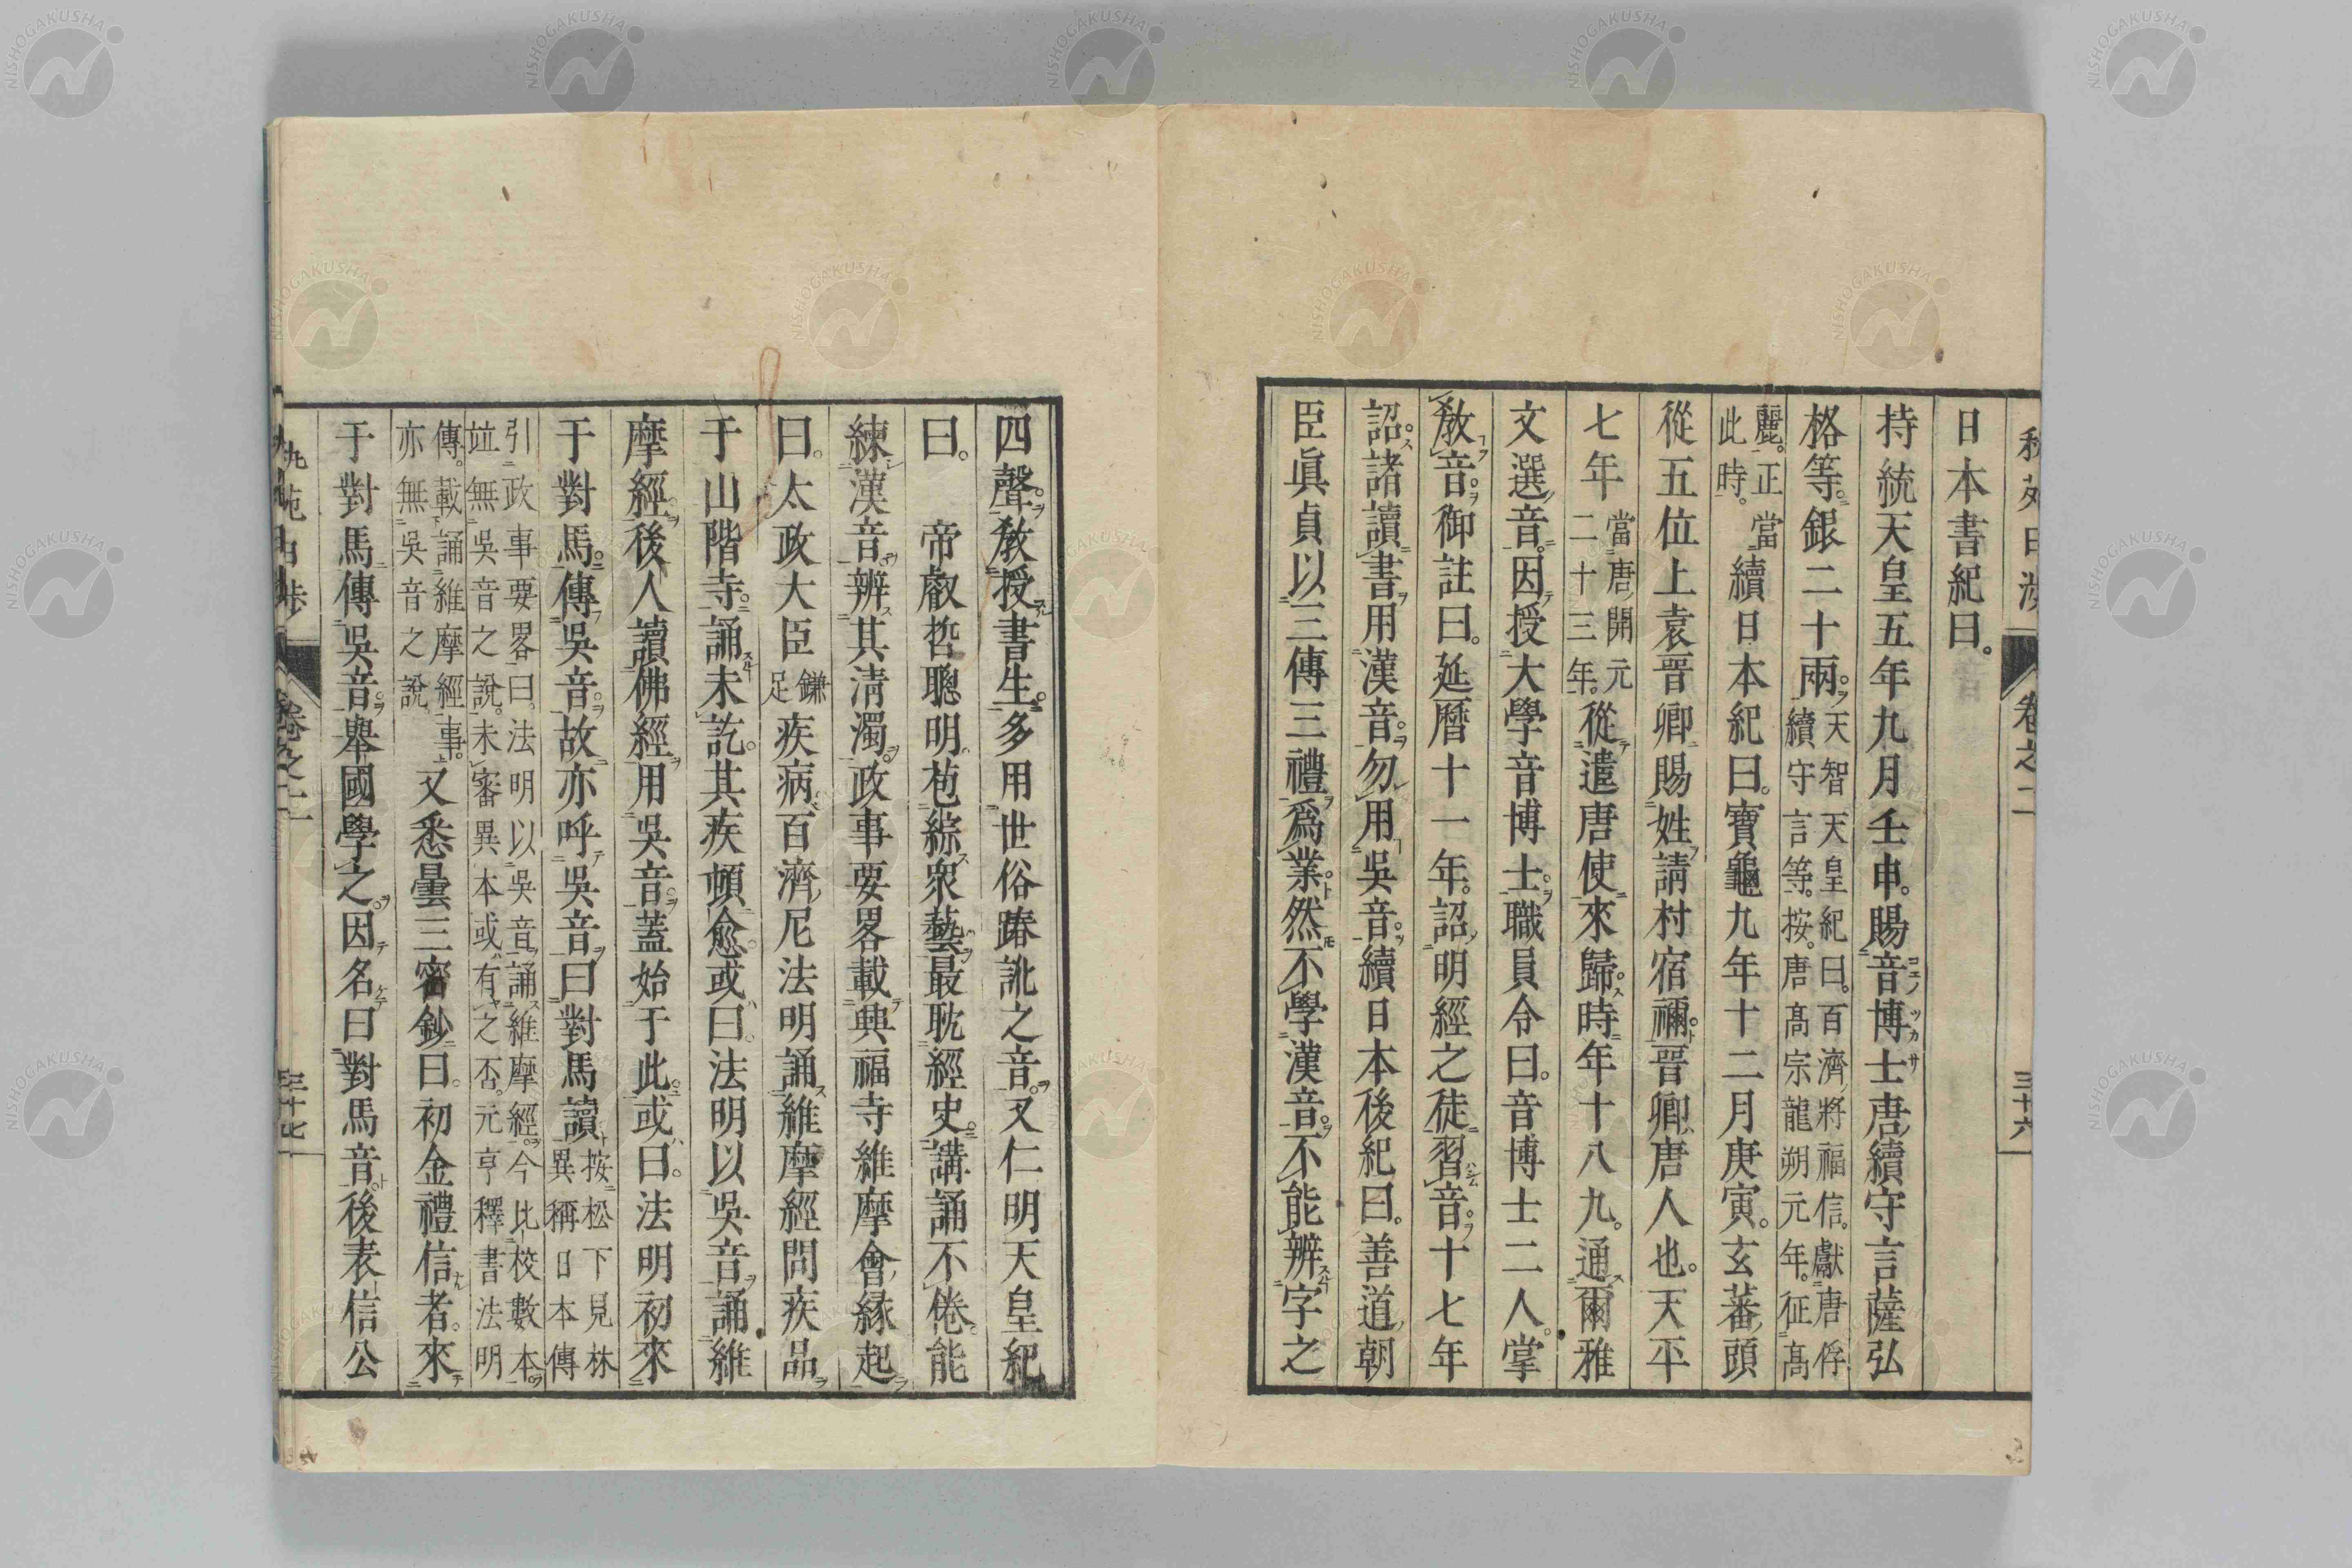 日本書紀曰。
持統天皇五年九月壬申。賜音博士唐續守言薩弘
格等。銀二十兩。天智天皇紀曰。百濟將福信。獻唐俘
續守言等。按。唐髙宗龍朔元年。征髙
麗。正當
此時。續日本紀曰。寶龜九年十二月庚寅。玄蕃頭
從五位上袁晉卿賜姓請村宿禰。晉卿唐人也。天平
七年當唐開元
二十三年。從遣唐使來歸。時年十八九。通爾雅
文選音。因授大學音博士。職員令曰。音博士二人。掌
敎音。御註曰。延曆十一年。詔明經之徒習音。十七年
詔。諸讀書用漢音。勿用吳音。續日本後紀曰。善道朝
臣眞貞以三傳三禮爲業。然不學漢音。不能辨字之
卷之二
三十六
四聲。敎授書生。多用世俗踳訛之音。又仁明天皇紀
曰。帝叡哲聰明。苞綜衆藝。最耽經史。講誦不倦。能
練漢音。辨其淸濁。政事要畧載興福寺維摩會緣起
曰。太政大臣鎌
足疾病。百濟尼法明誦維摩經問疾品
于山階寺。誦未訖。其疾頓愈。或曰。法明以吳音誦維
摩經。後人讀佛經用吳音。蓋始于此。或曰。法明初來
于對馬。傳吳音。故亦呼吳音曰對馬讀按松下見林
異稱日本傳
引政事要畧曰。法明以吳音誦維摩經。今比校數本。
竝無吳音之說。未審異本或有之否。元亨釋書法明
傳。載誦維摩經事。
亦無吳音之說。又悉曇三密鈔曰。初金禮信者。來
于對馬傳吳音。舉國學之。因名曰對馬音。後表信公
卷之二
三十七
NISHOGAKUSHA